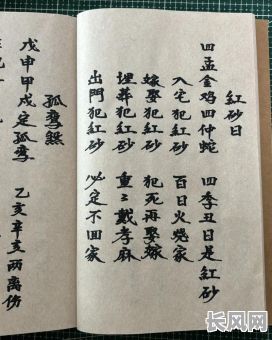 紅砂日
四孟金鸡四仲蛇 四季丑日是紅砂
入宅犯紅砂 百日火燒家
嫁娶犯紅砂 犯死再娶嫁
埋葬犯紅砂 重重戴孝麻
出門犯紅砂 必定不回家
孤鸞煞
戊申甲戌定孤鸞 乙亥辛亥两离伤
长风网